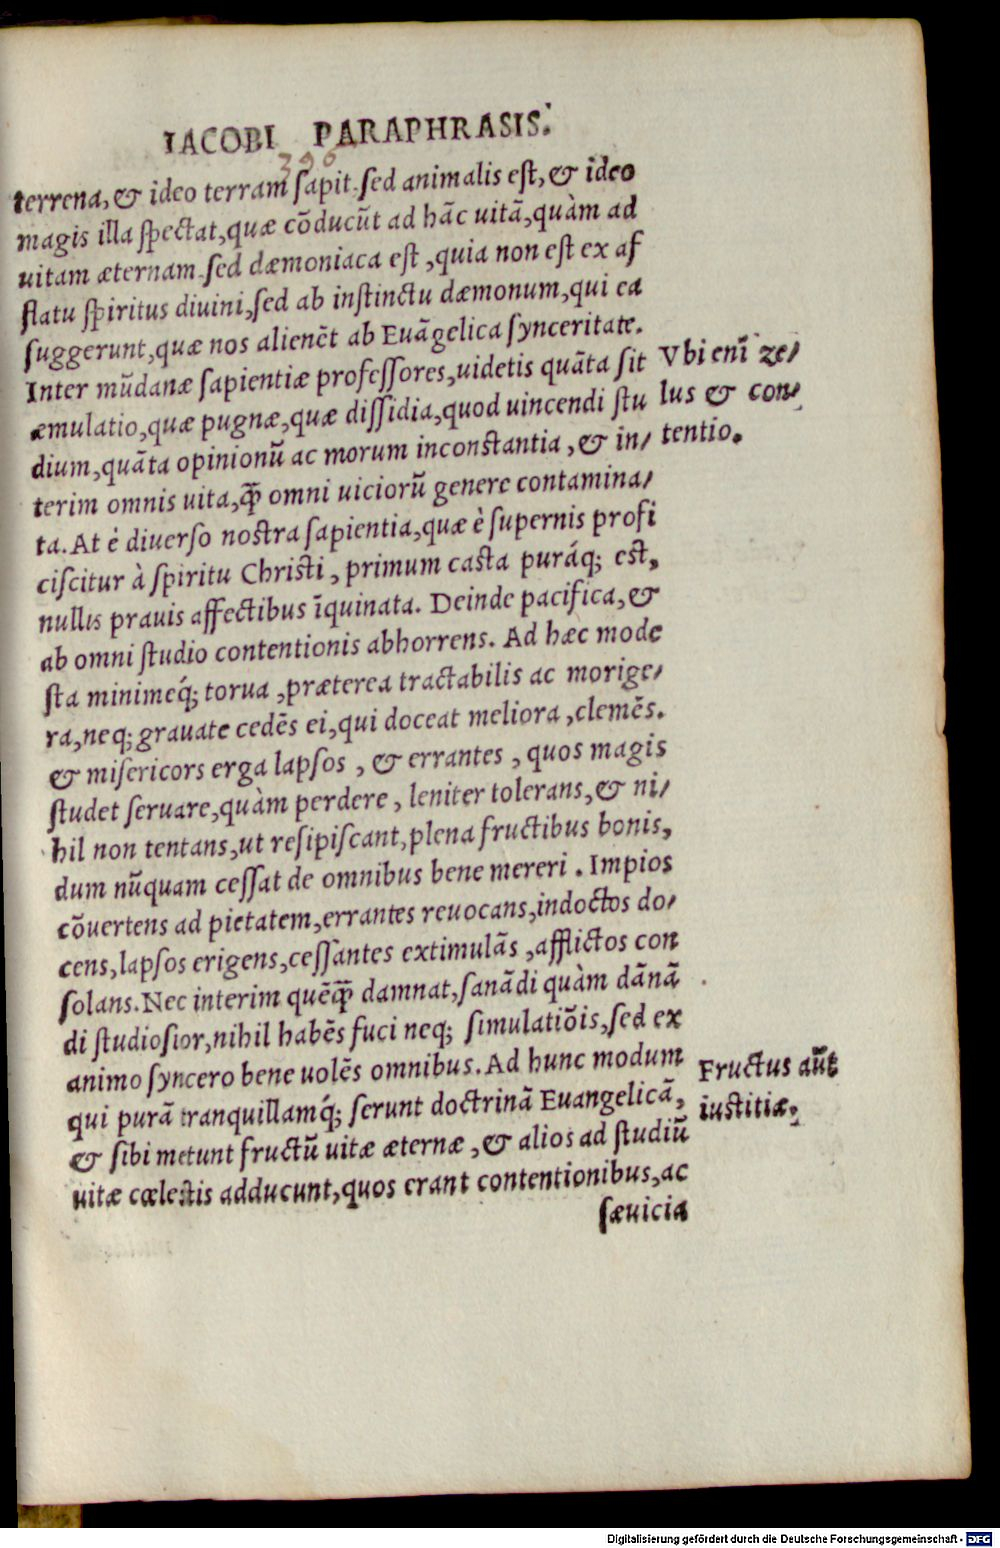 IACOBI PARAPHRASIS.
396
terrena, & ideo terram sapit. sed animalis est, & ideo
magis illa spectat, quæ cōducūt ad hāc uitā, quàm ad
uitam æternam. sed dæmoniaca est, quia non est ex af
flatu spiritus diuini, sed ab instinctu dæmonum, qui ea
suggerunt, quæ nos alienēt ab Euāgelica synceritate.
Inter mūdanæ sapientiæ professores, uidetis quāta sit
æmulatio, quæ pugnæ, quæ dissidia, quod uincendi stu
dium, quāta opinionū ac morum inconstantia, & in/
terim omnis uita, q̄ꝫ omni uiciorū genere contamina/
ta. At è diuerso nostra sapientia, quæ è supernis profi
ciscitur à spiritu Christi, primum casta puráq; est,
nullis prauis affectibus īquinata. Deinde pacifica, &
ab omni studio contentionis abhorrens. Ad hæc mode
sta minimeq́; torua, præterea tractabilis ac morige/
ra, neq; grauate cedēs ei, qui doceat meliora, clemēs.
& misericors erga lapsos, & errantes, quos magis
studet seruare, quàm perdere, leniter tolerans, & ni/
hil non tentans, ut resipiscant, plena fructibus bonis,
dum nūquam cessat de omnibus bene mereri. Impios
cōuertens ad pietatem, errantes reuocans, indoctos do/
cens, lapsos erigens, cessantes extimulās, afflictos con
solans. Nec interim quēq̄ꝫ damnat, sanādi quàm dānā
di studiosior, nihil habēs fuci neq; simulatiōis, sed ex
animo syncero bene uolēs omnibus. Ad hunc modum
qui purā tranquillamq́; serunt doctrinā Euangelicā,
& sibi metunt fructū uitæ æternæ, & alios ad studiū
uitæ cœlestis adducunt, quos erant contentionibus, ac
sæuicia
Vbi enī ze/
lus & con/
tentio.
Fructus aūt
iustitiæ.
Digitalisierung gefördert durch die Deutsche Forschungsgemeinschaft - DFG